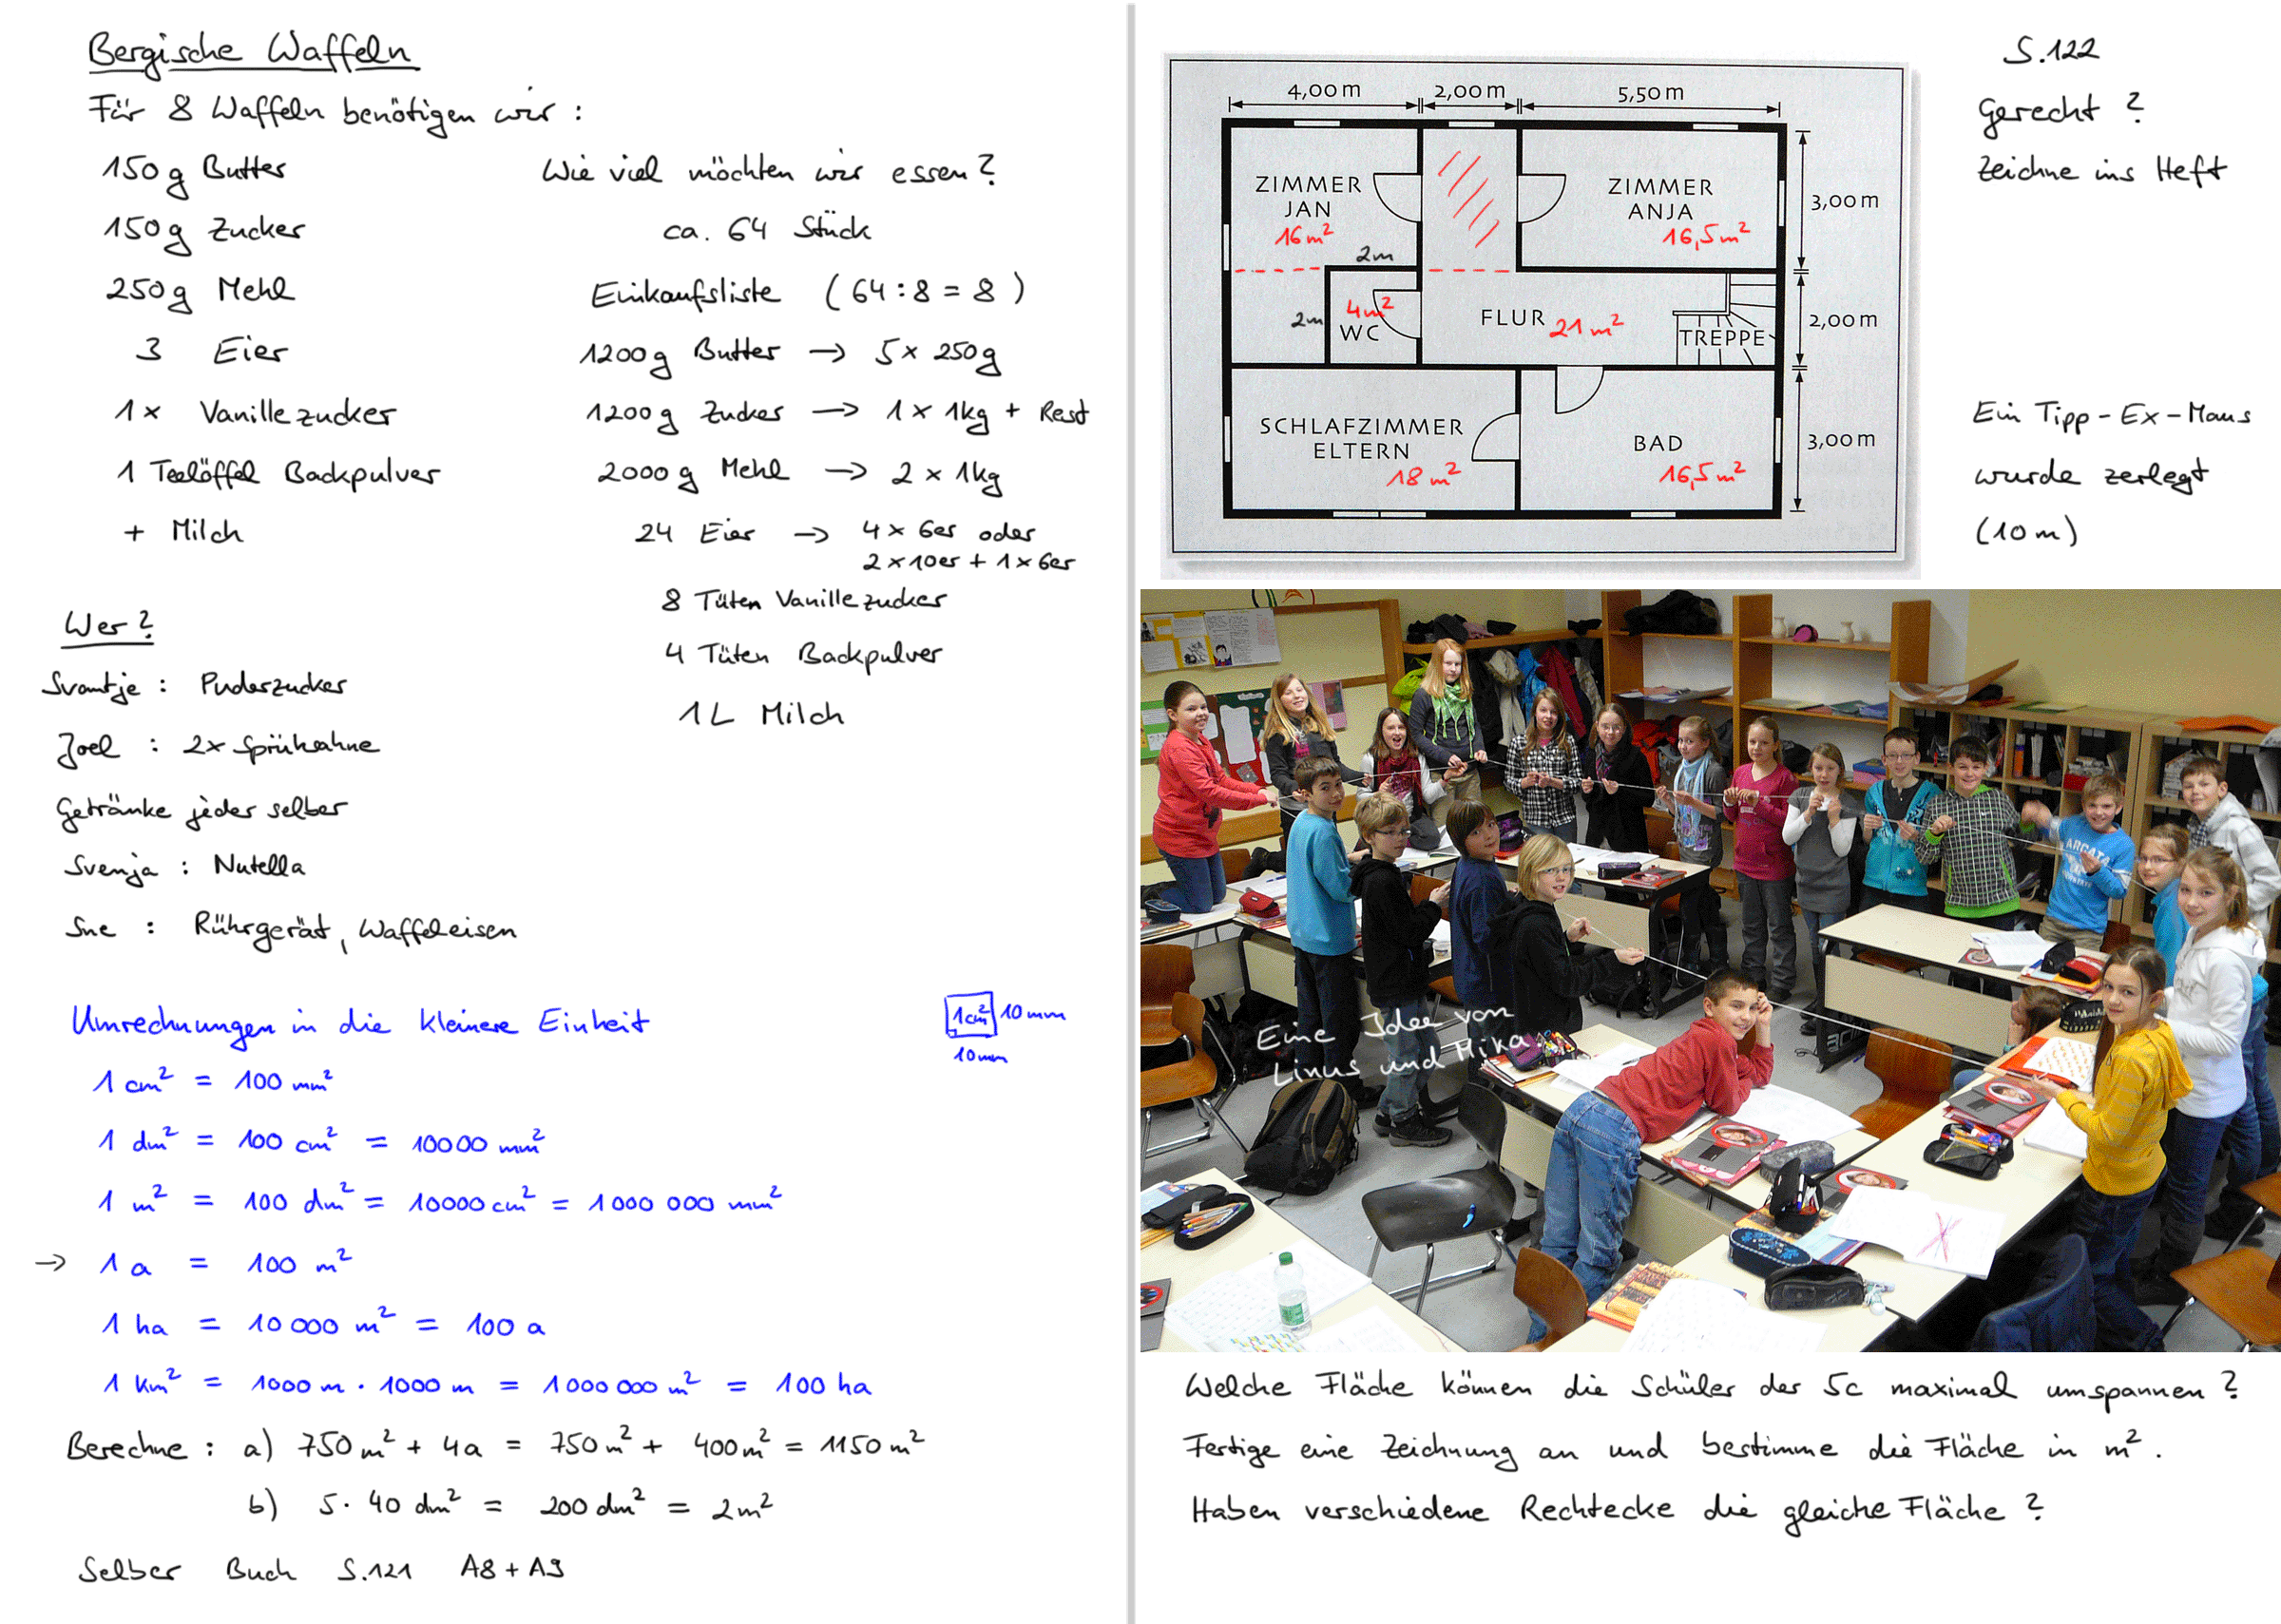 Bergische Waffeln
Für 8 Waffeln benötigen wir :
150g Butter
150g Zucker
250g Mehl
3 Eier
1x Vanillezucker
1 Teelöffel Backpulver
+ Milch
Wie viel möchten wir essen?
ca. 64 Stück
Einkaufsliste (64:8 = 8)
1200g Butter → 5x 250g
1200g Zucker → 1x 1kg + Rest
2000g Mehl → 2x 1kg
24 Eier → 4x 6er oder
2x10er + 1x6er
8 Tüten Vanillezucker
4 Tüten Backpulver
1L Milch
Wer?
Svantje : Puderzucker
Joel : 2x Sprühsahne
Getränke jeder selber
Svenja : Nutella
Sne : Rührgerät, Waffeleisen
Umrechnungen in die kleinere Einheit
1cm² 10mm
10mm
1 cm² = 100 mm²
1 dm² = 100 cm² = 10000 mm²
1 m² = 100 dm² = 10000 cm² = 1000 000 mm²
→ 1 a = 100 m²
1 ha = 10 000 m² = 100 a
1 km² = 1000 m · 1000 m = 1 000 000 m² = 100 ha
Berechne : a) 750 m² + 4a = 750 m² + 400 m² = 1150 m²
b) 5 · 40 dm² = 200 dm² = 2 m²
Selber Buch S.121 A8 + A9
4,00 m 2,00 m 5,50 m
ZIMMER
JAN
16 m²
2m
2m
4 m²
WC
ZIMMER
ANJA
16,5 m²
FLUR 21 m²
TREPPE
SCHLAFZIMMER
ELTERN
18 m²
BAD
16,5 m²
3,00 m
2,00 m
3,00 m
S.122
Gerecht ?
Zeichne ins Heft
Ein Tipp-Ex-Maus
wurde zerlegt
(10 m)
ARCATA
Eine Idee von
Linus und Mika
Welche Fläche können die Schüler der 5c maximal umspannen ?
Fertige eine Zeichnung an und bestimme die Fläche in m².
Haben verschiedene Rechtecke die gleiche Fläche ?